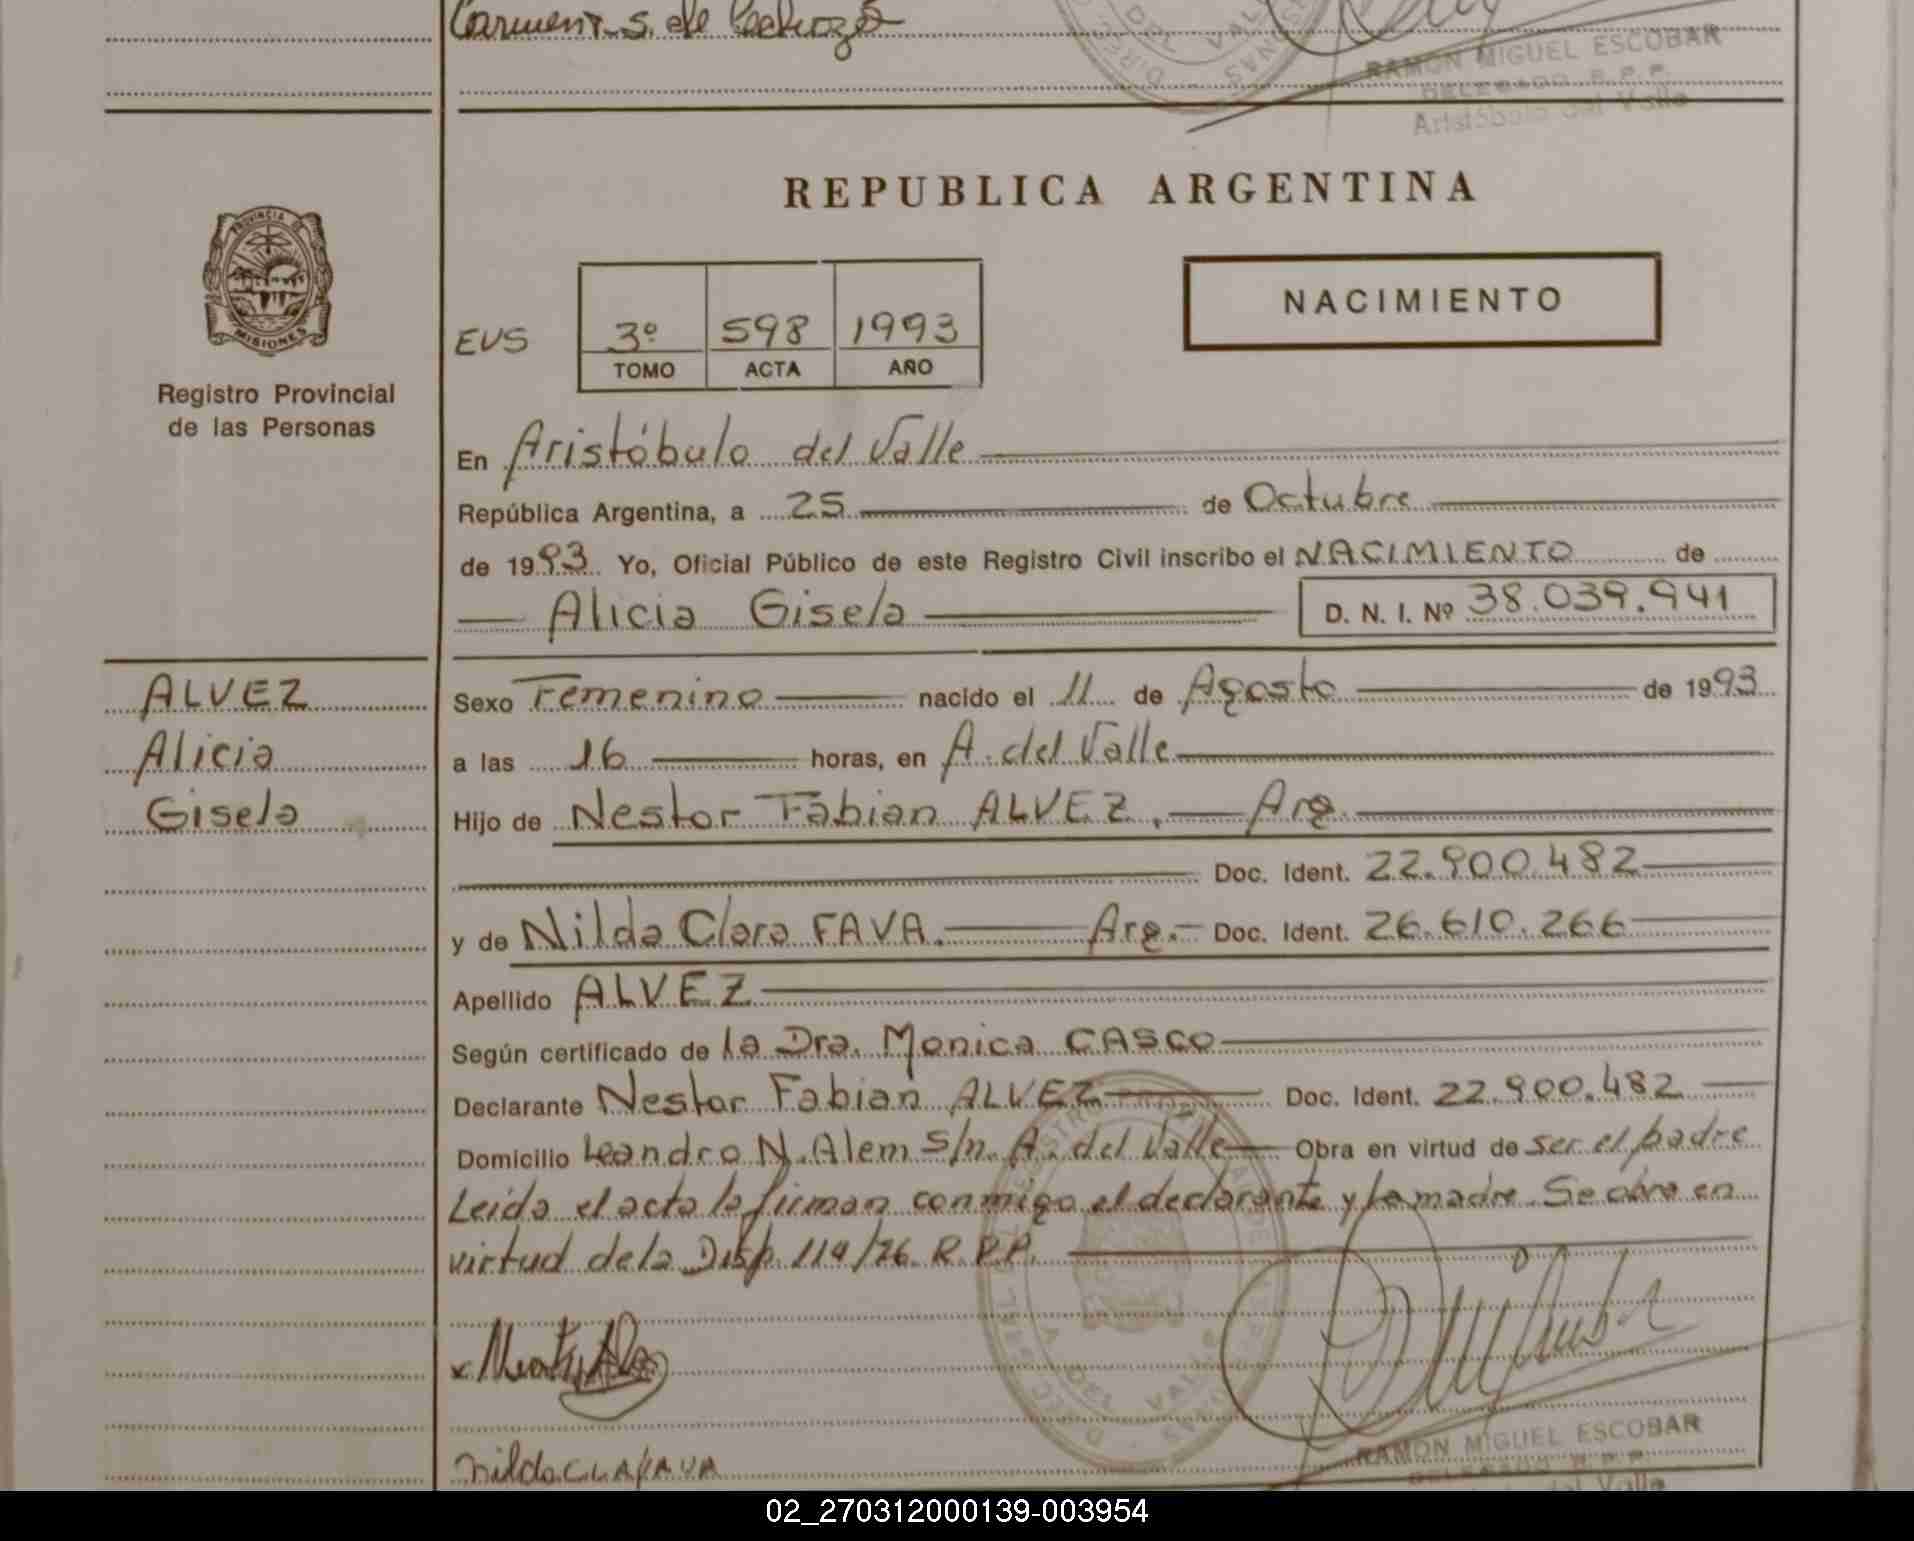 Carmen S. de Pedrozo
RAMON MIGUEL ESCOBAR
DELEGADO R.P.P.
Aristóbulo del Valle
REPUBLICA ARGENTINA
PROVINCIA DE
MISIONES
Registro Provincial
de las Personas
EVS
3º 598 1993
TOMO ACTA AÑO
NACIMIENTO
En Aristóbulo del Valle
República Argentina, a 25 de Octubre
de 1993 Yo, Oficial Público de este Registro Civil inscribo el NACIMIENTO de
Alicia Gisela D. N. I. Nº 38.039.941
ALVEZ
Alicia
Gisela
Sexo Femenino nacido el 11 de Agosto de 1993
a las 16 horas, en A. del Valle
Hijo de Nestor Fabian ALVEZ. Arg.
Doc. Ident. 22.900.482
y de Nilda Clara FAVA. Arg. Doc. Ident. 26.610.266
Apellido ALVEZ
Según certificado de la Dra. Monica CASCO
Declarante Nestor Fabian ALVEZ Doc. Ident. 22.900.482
Domicilio Leandro N. Alem S/n. A. del Valle Obra en virtud de ser el padre
Leida el acta la firman conmigo el declarante y la madre. Se obra en
virtud de la Disp. 114/76. R.P.P.
Nilda CLARA FAVA
RAMON MIGUEL ESCOBAR
DELEGADO R.P.P.
del Valle
02_270312000139-003954